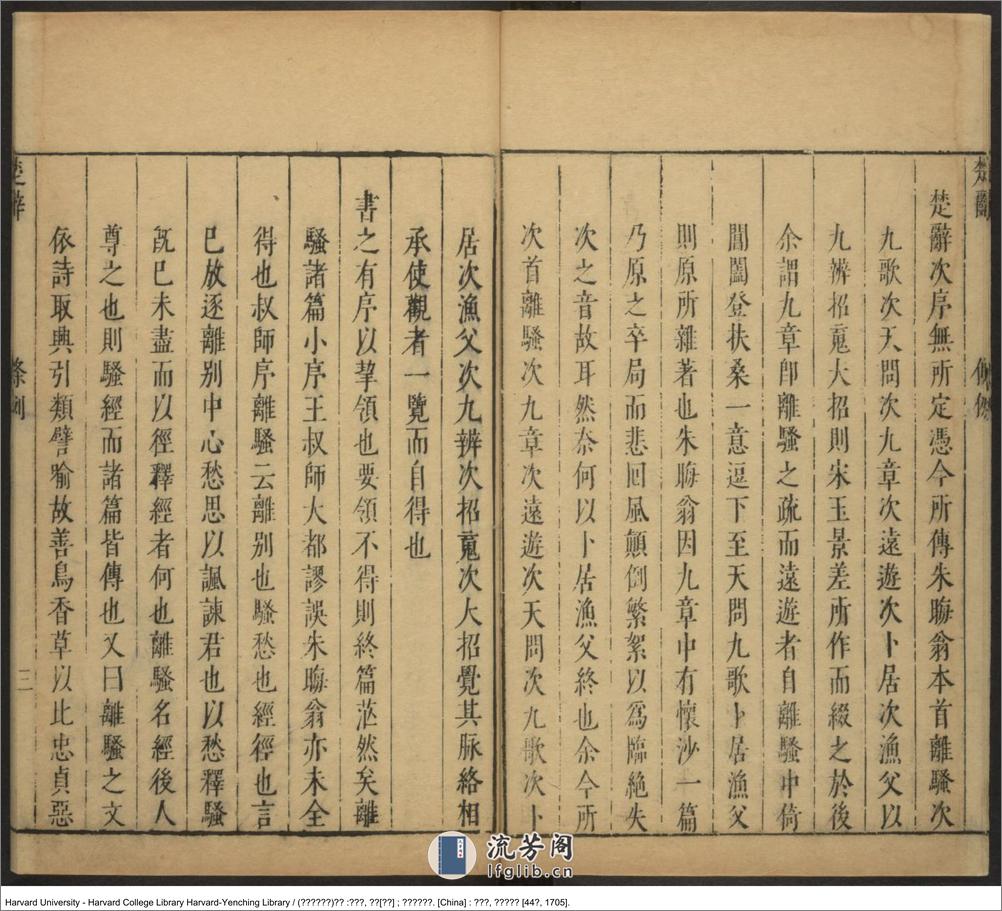 楚辭次序無所定憑今所傳朱晦翁本首離騷次
九歌次天問次九章次遠遊次卜居次漁父以
九辨招䰟大招則宋玉景差所作而綴之於後
余謂九章卽離騷之疏而遠遊者自離騷中倚
閶闔登扶桑一意逗下至天問九歌卜居漁父
則原所雜著也朱晦翁因九章中有懷沙一篇
乃原之卒局而悲囘風顛倒繁絮以爲臨絶失
次之音故耳然奈何以卜居漁父終也余今所
次首離騷次九章次遠遊次天問次九歌次卜
居次漁父次九辨次招䰟次大招覺其脉絡相
承使觀者一覽而自得也
書之有序以挈領也要領不得則終篇茫然矣離
騷諸篇小序王叔師大都謬誤朱晦翁亦未全
得也叔師序離騷云離别也騷愁也經徑也言
已放逐離别中心愁思以諷諫君也以愁釋騷
旣已未盡而以徑釋經者何也離騷名經後人
尊之也則騷經而諸篇皆傳也又曰離騷之文
依詩取興引類譬喻故善鳥香草以比忠貞惡
楚辭
條例
三
流芳阁
lfglib.cn
Harvard University - Harvard College Library Harvard-Yenching Library / (??????)?? :???, ??[??] ; ??????. [China] : ???, ????? [44?, 1705].